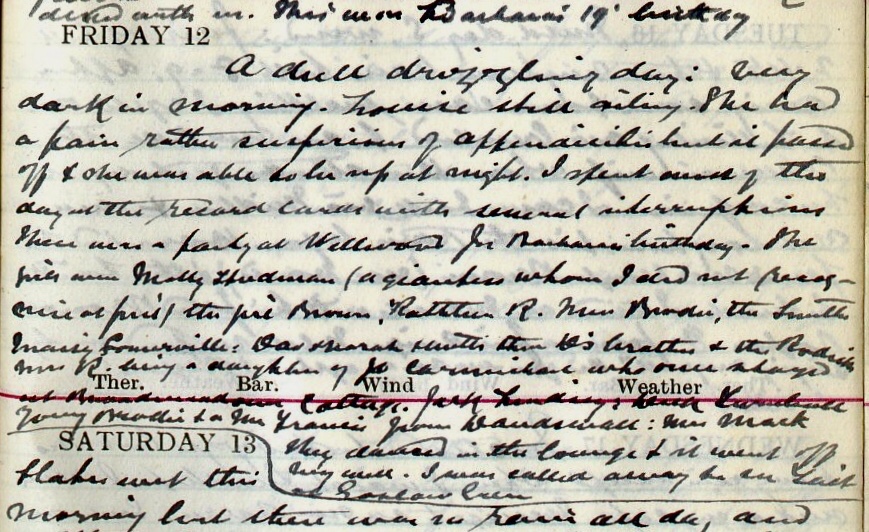 dined with us. This was Barbara's 19th birthday
FRIDAY 12
A dull drizzling day: very
dark in morning. Louise still ailing. She had
a pain rather suspicious of appendicitis but it passed
off & she was able to be up at night. I spent most of the
day at the record cards with several interruptions
There was a party at Wellwood for Barbara's birthday. The
girls were Molly (a giantess whom I did not recog-
nise at first) the Brown, Kathleen R. Miss Brodie, the Smiths
Maisy Somerville: brother & the
Mrs R. being a daughter of Jo Carmichael who once stayed
Ther. Bar. Wind Weather
at Cottage. Jack
young Brodie & a Mr Francis from : Mrs Mack
SATURDAY 13
They danced in the lounge & it went off
very well. I was called away to see
flakes wet this
morning but there was no rain all day and